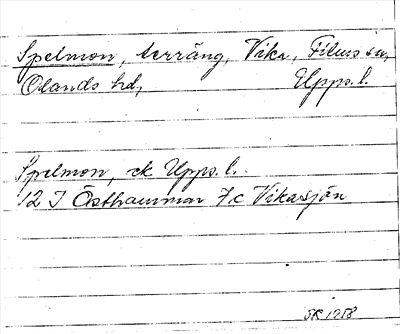 Spelmon, terräng, Vika, Films sn,
Olands hd, Upps. l.
Spelmon, ek Upps. l.
12 I Östhammar 7c Vikasjön
1958